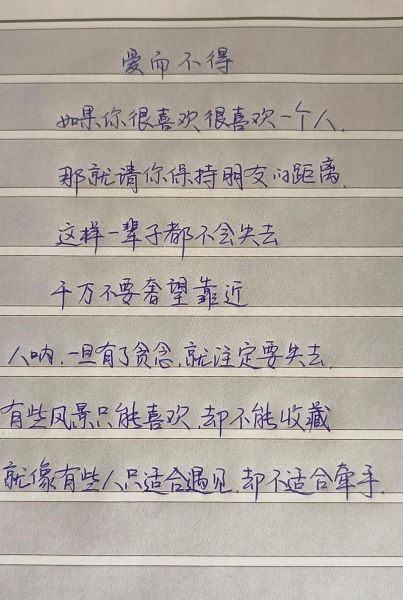 爱而不得
如果你很喜欢很喜欢一个人,
那就请你保持朋友的距离.
这样一辈子都不会失去
千万不要奢望靠近
人呐,一旦有了贪念,就注定要失去.
有些风景只能喜欢,却不能收藏
就像有些人只适合遇见,却不适合牵手.